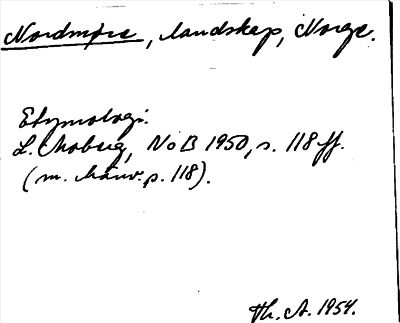 Nordmøre, landskap, Norge.
Etymologi.
L. Moberg, NoB 1950, s. 118 ff.
(m. hänv. p. 118).
Th. A. 1954.